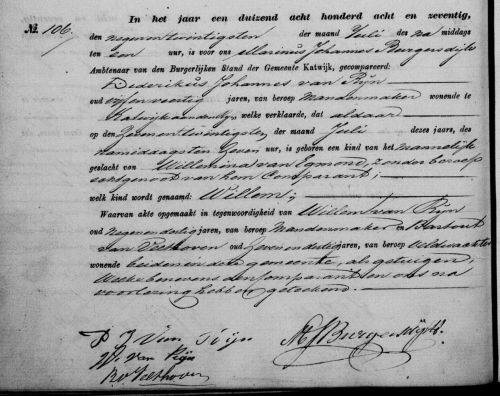 No. 106.
In het jaar een duizend acht honderd acht en zeventig,
den negenentwintigsten der maand Juli des na middags
ten een uur, is voor ons Marinus Johannes Burgersdijk
Ambtenaar van den Burgerlijken Stand der Gemeente Katwijk, gecompareerd:
Johannes van Rijn
oud jaren, van beroep Mandenmaker wonende te
welke verklaarde, dat aldaar
op den Zevenentwintigsten der maand Juli dezes jaars, des
namiddags ten Zeven uur, is geboren een kind van het Mannelijk
geslacht van Willemina van Egmond, zonder beroep
echtgenoot van hem Comparant;
welk kind wordt genaamd: Willem;
Waarvan akte opgemaakt in tegenwoordigheid van Willem van Rijn
oud Negenendertig jaren, van beroep Mandenmaker en
van Velthoven oud Zevenendertig jaren, van beroep Veldwachter
wonende beiden in deze gemeente, als getuigen,
Welke benevens den Comparant en ons na
voorlezing hebben geteekend.
van Rijn
W. van Rijn
Velthoven
MJBurgersdijk